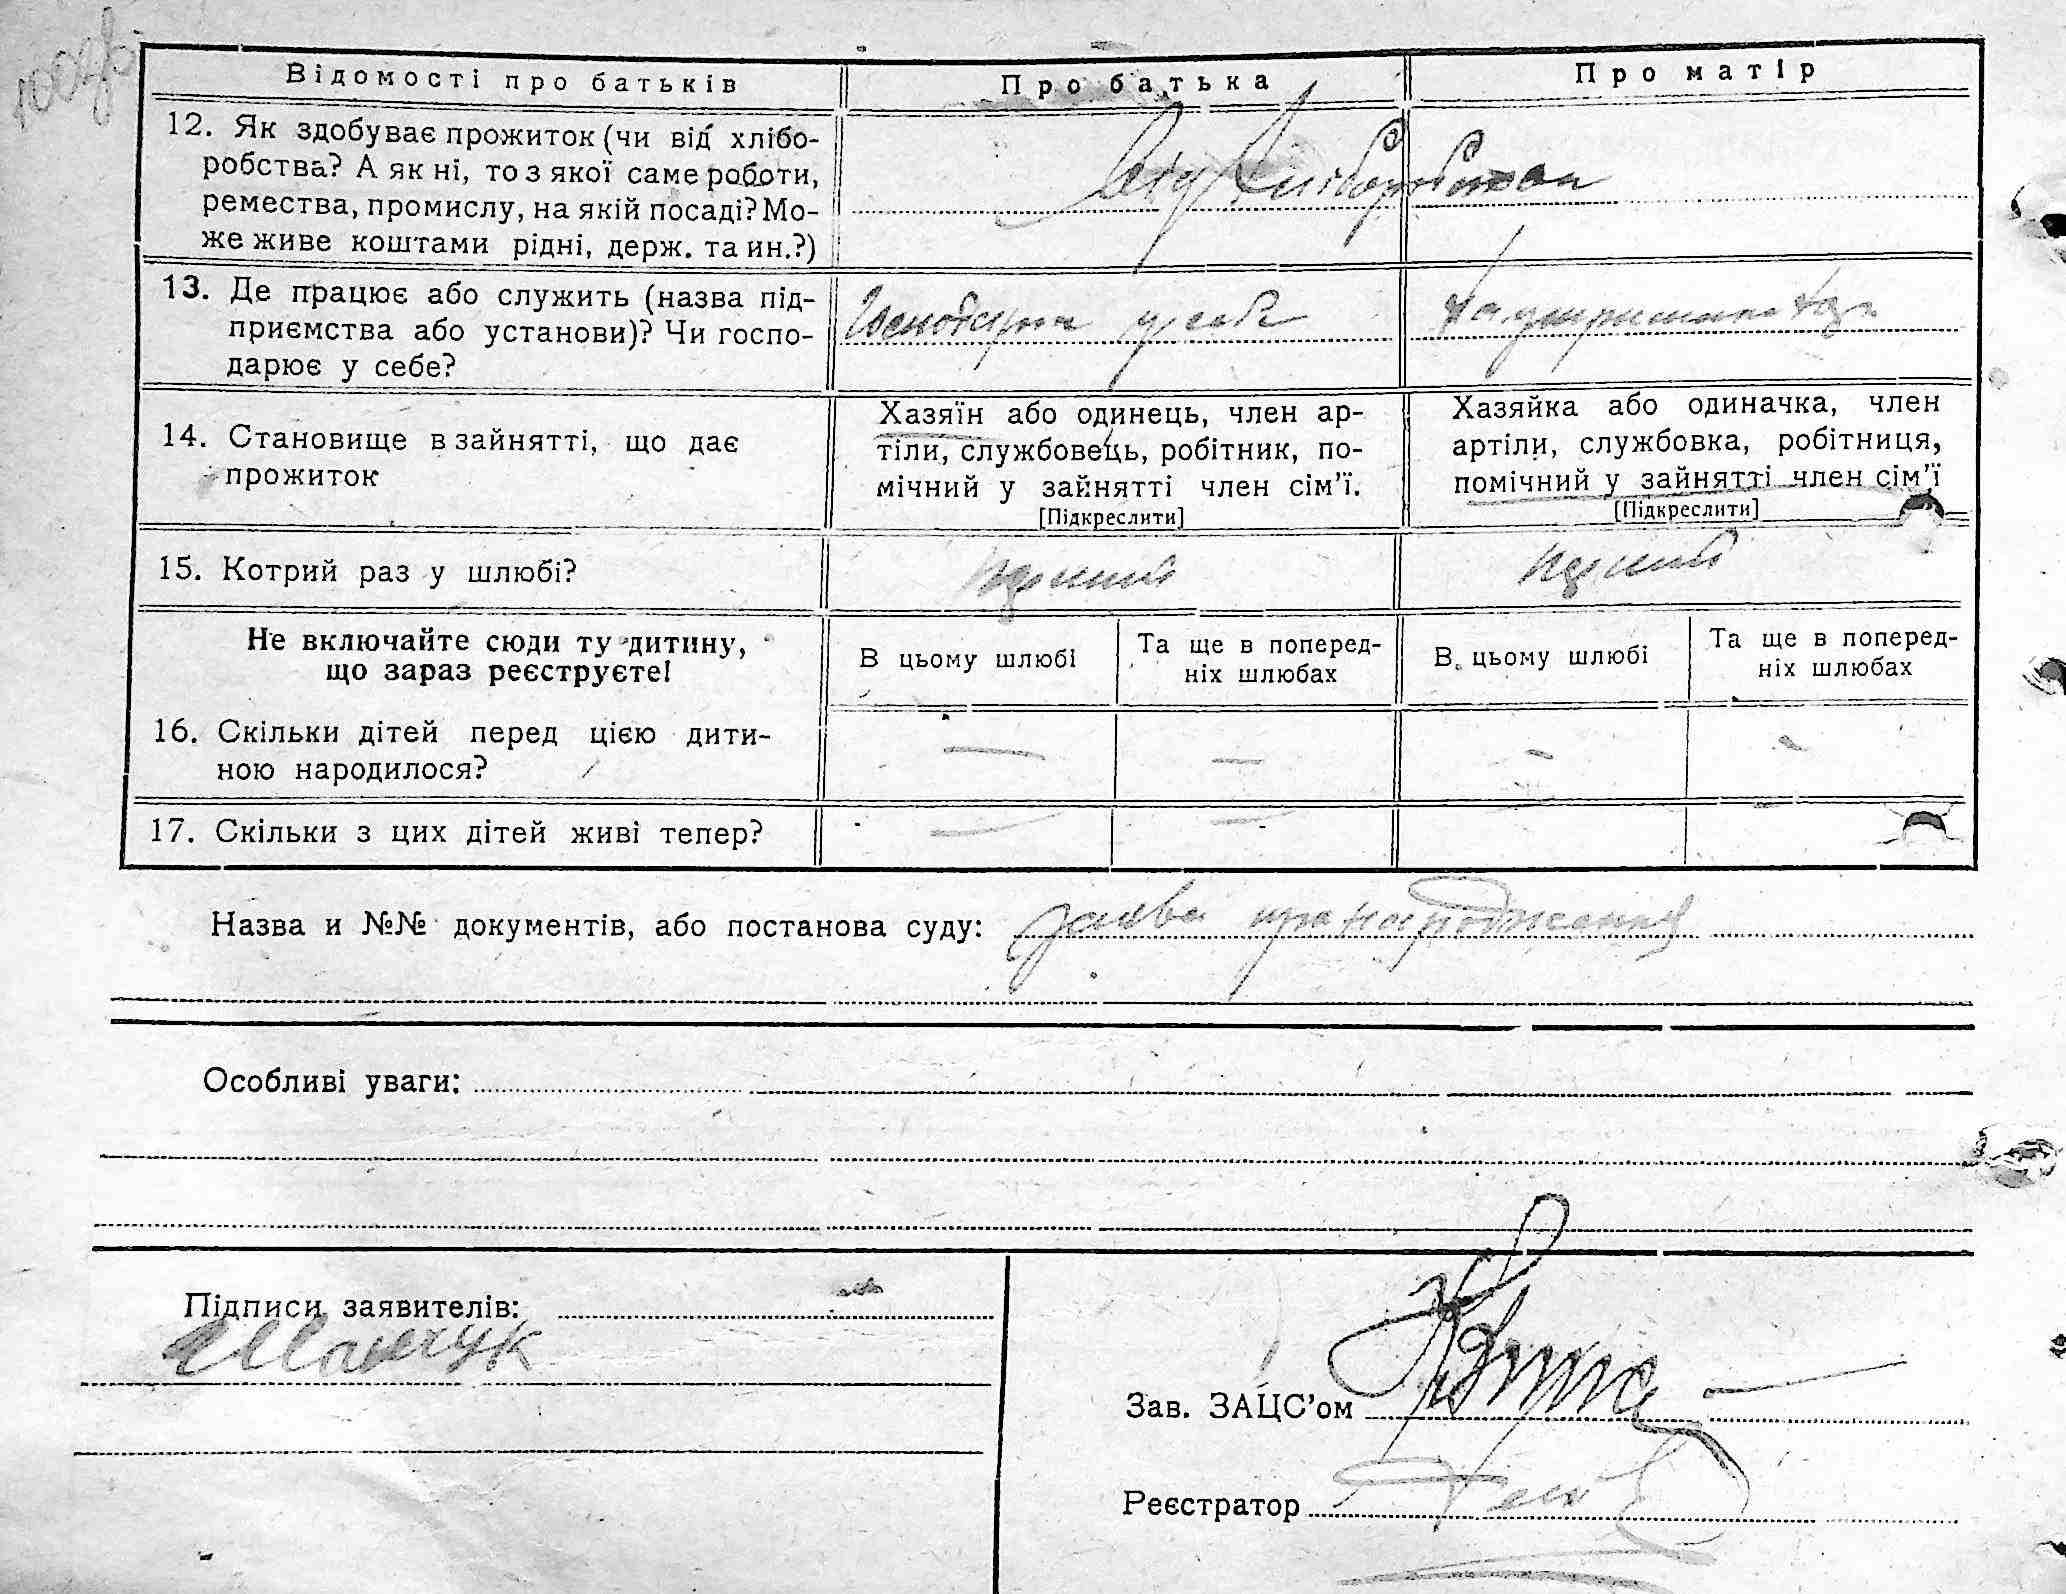 Відомості про батьків
Про батька
Про матір
12. Як здобуває прожиток (чи від хлібо-
робства? А як ні, то з якої саме роботи,
ремества, промислу, на якій посаді? Мо-
же живе коштами рідні, держ. та ин.?)
13. Де працює або служить (назва під-
приємства або установи)? Чи госпо-
дарює у себе?
у себе
14. Становище в зайнятті, що дає
прожиток
Хазяїн або одинець, член ар-
тіли, службовець, робітник, по-
мічний у зайнятті член сім'ї.
[Підкреслити]
Хазяйка або одиначка, член
артіли, службовка, робітниця,
помічний у зайнятті член сім'ї
[Підкреслити]
15. Котрий раз у шлюбі?
перший
перший
Не включайте сюди ту дитину,
що зараз реєструєте!
В цьому шлюбі
Та ще в поперед-
ніх шлюбах
В цьому шлюбі
Та ще в поперед-
ніх шлюбах
16. Скільки дітей перед цією дити-
ною народилося?
— — — -
17. Скільки з цих дітей живі тепер?
— —
Назва и №№ документів, або постанова суду: заява про народження
Особливі уваги:
Підписи заявителів:
Зав. ЗАЦС'ом
Реєстратор